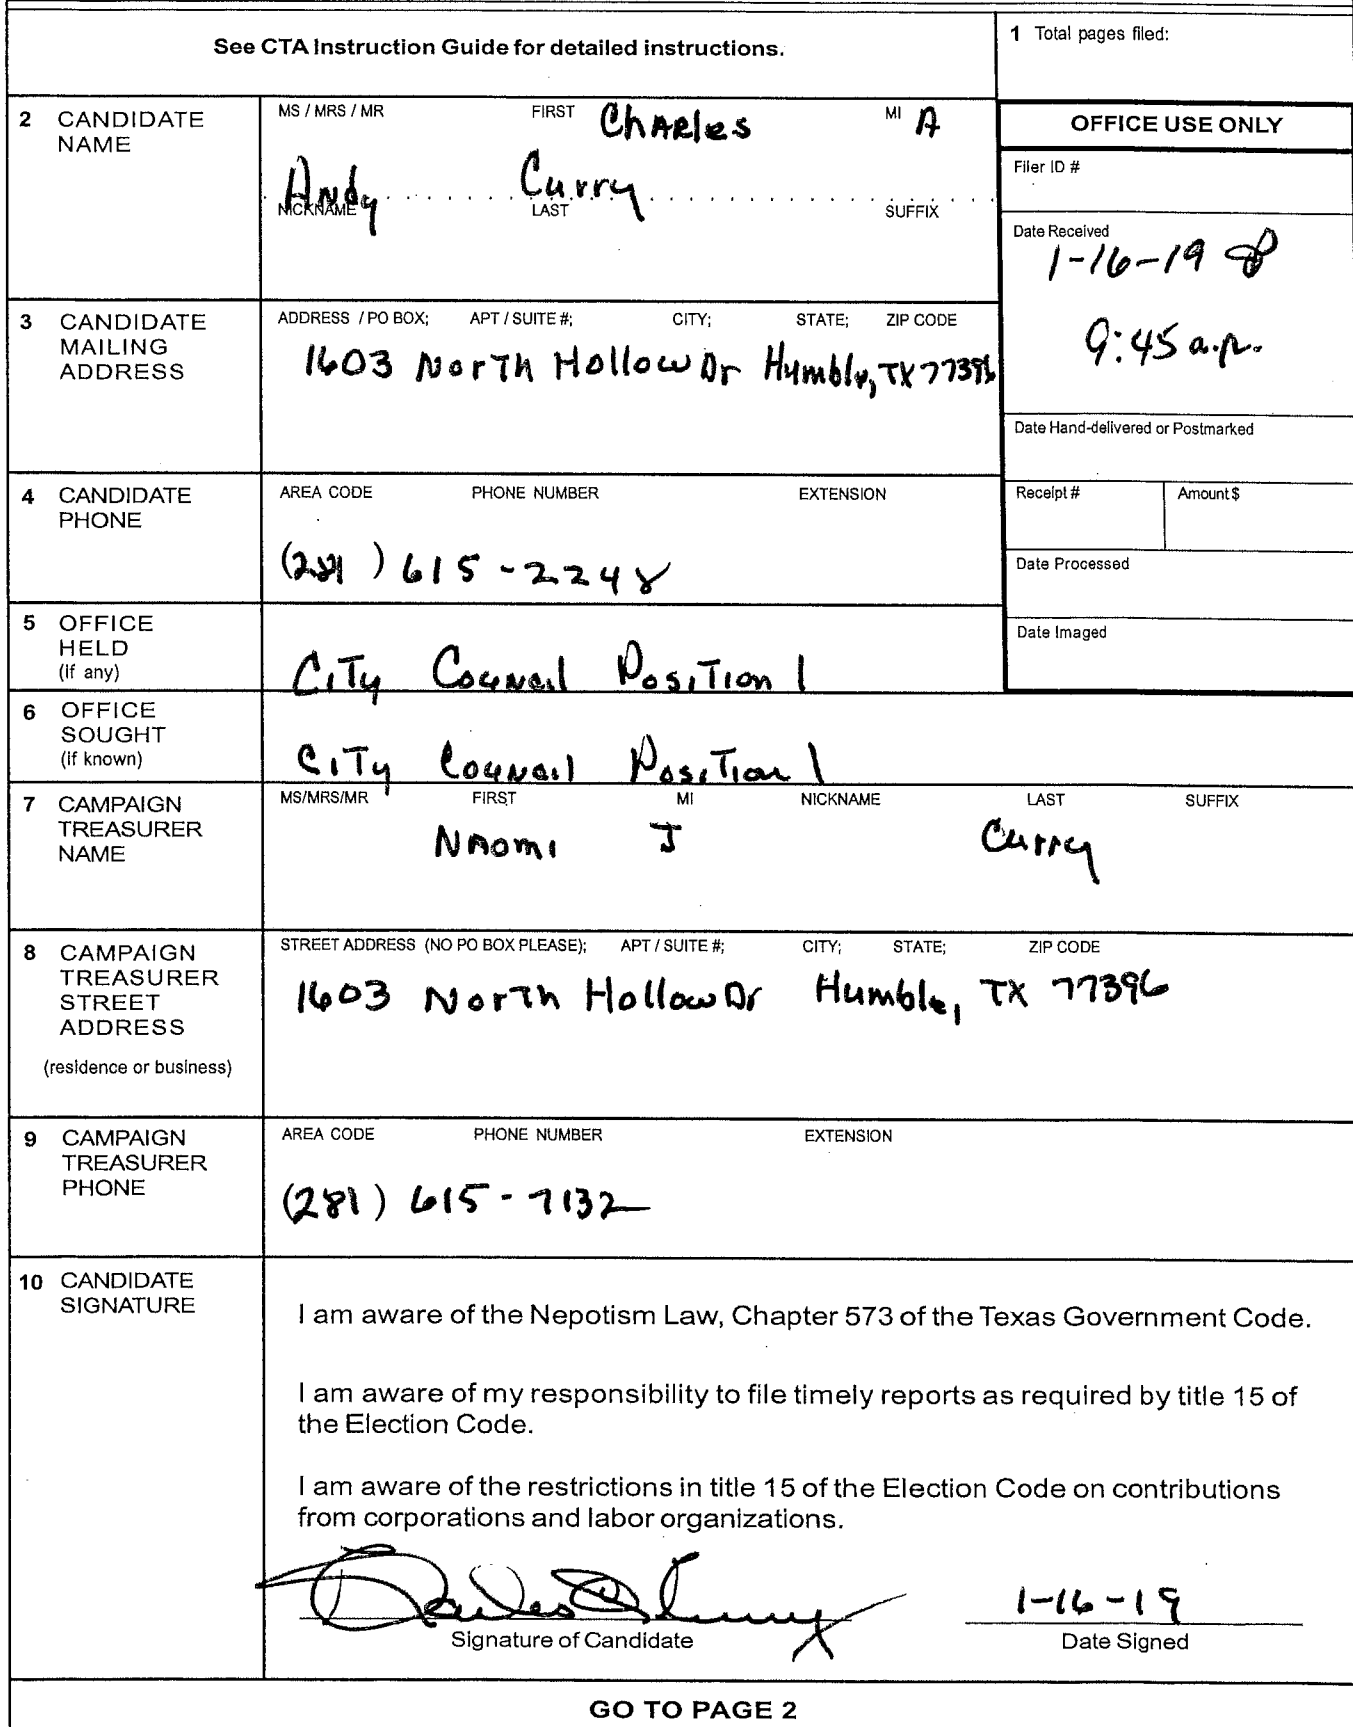 See CTA Instruction Guide for detailed instructions.
1 Total pages filed:
2 CANDIDATE NAME
MS / MRS / MR FIRST MI
Charles A
Andy Curry
NICKNAME LAST SUFFIX
OFFICE USE ONLY
Filer ID #
Date Received
1-16-19
9:45 a.m.
Date Hand-delivered or Postmarked
Receipt # Amount $
Date Processed
Date Imaged
3 CANDIDATE MAILING ADDRESS
ADDRESS / PO BOX; APT / SUITE #; CITY; STATE; ZIP CODE
1603 North Hollow Dr Humble, TX 77396
4 CANDIDATE PHONE
AREA CODE PHONE NUMBER EXTENSION
(281) 615-2248
5 OFFICE HELD (if any)
City Council Position 1
6 OFFICE SOUGHT (if known)
City Council Position 1
7 CAMPAIGN TREASURER NAME
MS/MRS/MR FIRST MI NICKNAME LAST SUFFIX
Naomi J Curry
8 CAMPAIGN TREASURER STREET ADDRESS
(residence or business)
STREET ADDRESS (NO PO BOX PLEASE); APT / SUITE #; CITY; STATE; ZIP CODE
1603 North Hollow Dr Humble, TX 77396
9 CAMPAIGN TREASURER PHONE
AREA CODE PHONE NUMBER EXTENSION
(281) 615-7132
10 CANDIDATE SIGNATURE
I am aware of the Nepotism Law, Chapter 573 of the Texas Government Code.
I am aware of my responsibility to file timely reports as required by title 15 of
the Election Code.
I am aware of the restrictions in title 15 of the Election Code on contributions
from corporations and labor organizations.
Charles A Curry
1-16-19
Signature of Candidate Date Signed
GO TO PAGE 2